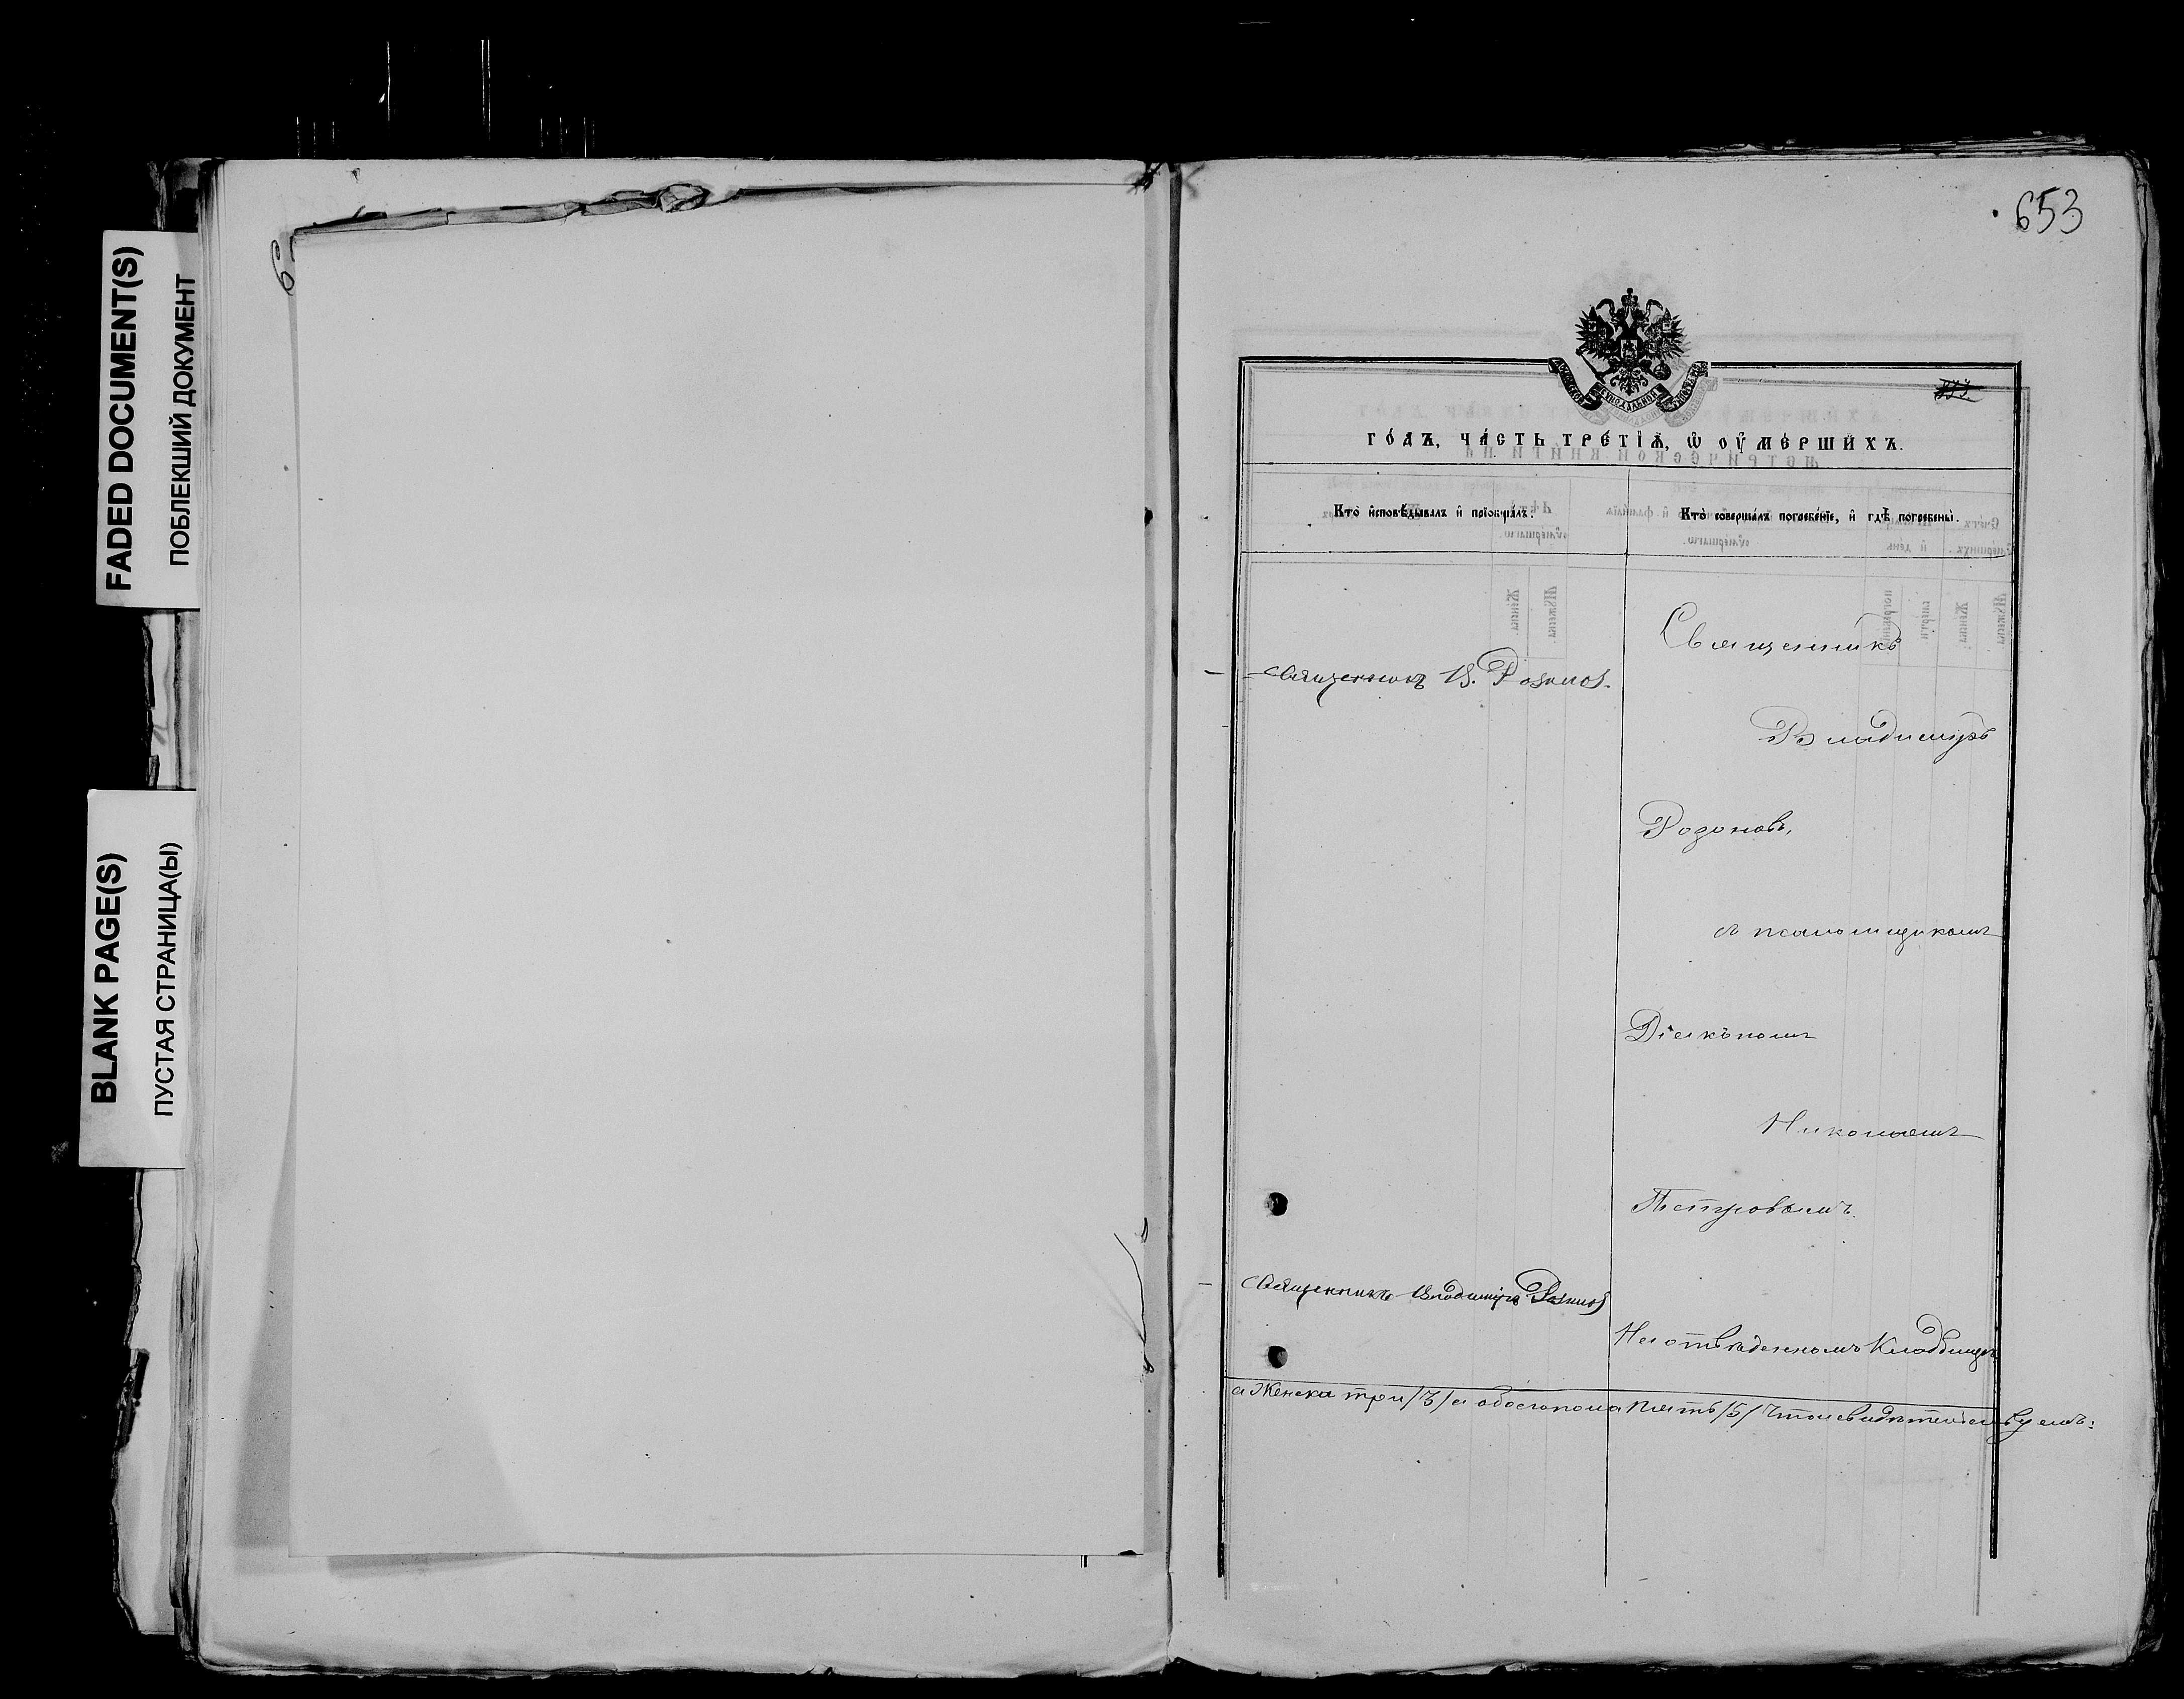 FADED DOCUMENT(S)
ПОБЛЕКШИЙ ДОКУМЕНТ
BLANK PAGE(S)
ПУСТАЯ СТРАНИЦА(Ы)
653
ГОДЪ, ЧАСТЬ ТРЕТІѦ, Ѡ ОУМЕРШИХЪ.
Кто исповѣдывалъ и пріобщалъ.
Кто совершалъ погребеніе, и гдѣ погребены.
Священникъ
Священникъ В.
Владиміръ
Розоновъ,
съ псаломщикомъ
Діакономъ
Николаемъ
Петровымъ.
Священникъ Владиміръ
На отведенномъ Кладбищѣ.
а Женска три /3/ а обоего пола пять /5/ Что и свидѣтельствуемъ: